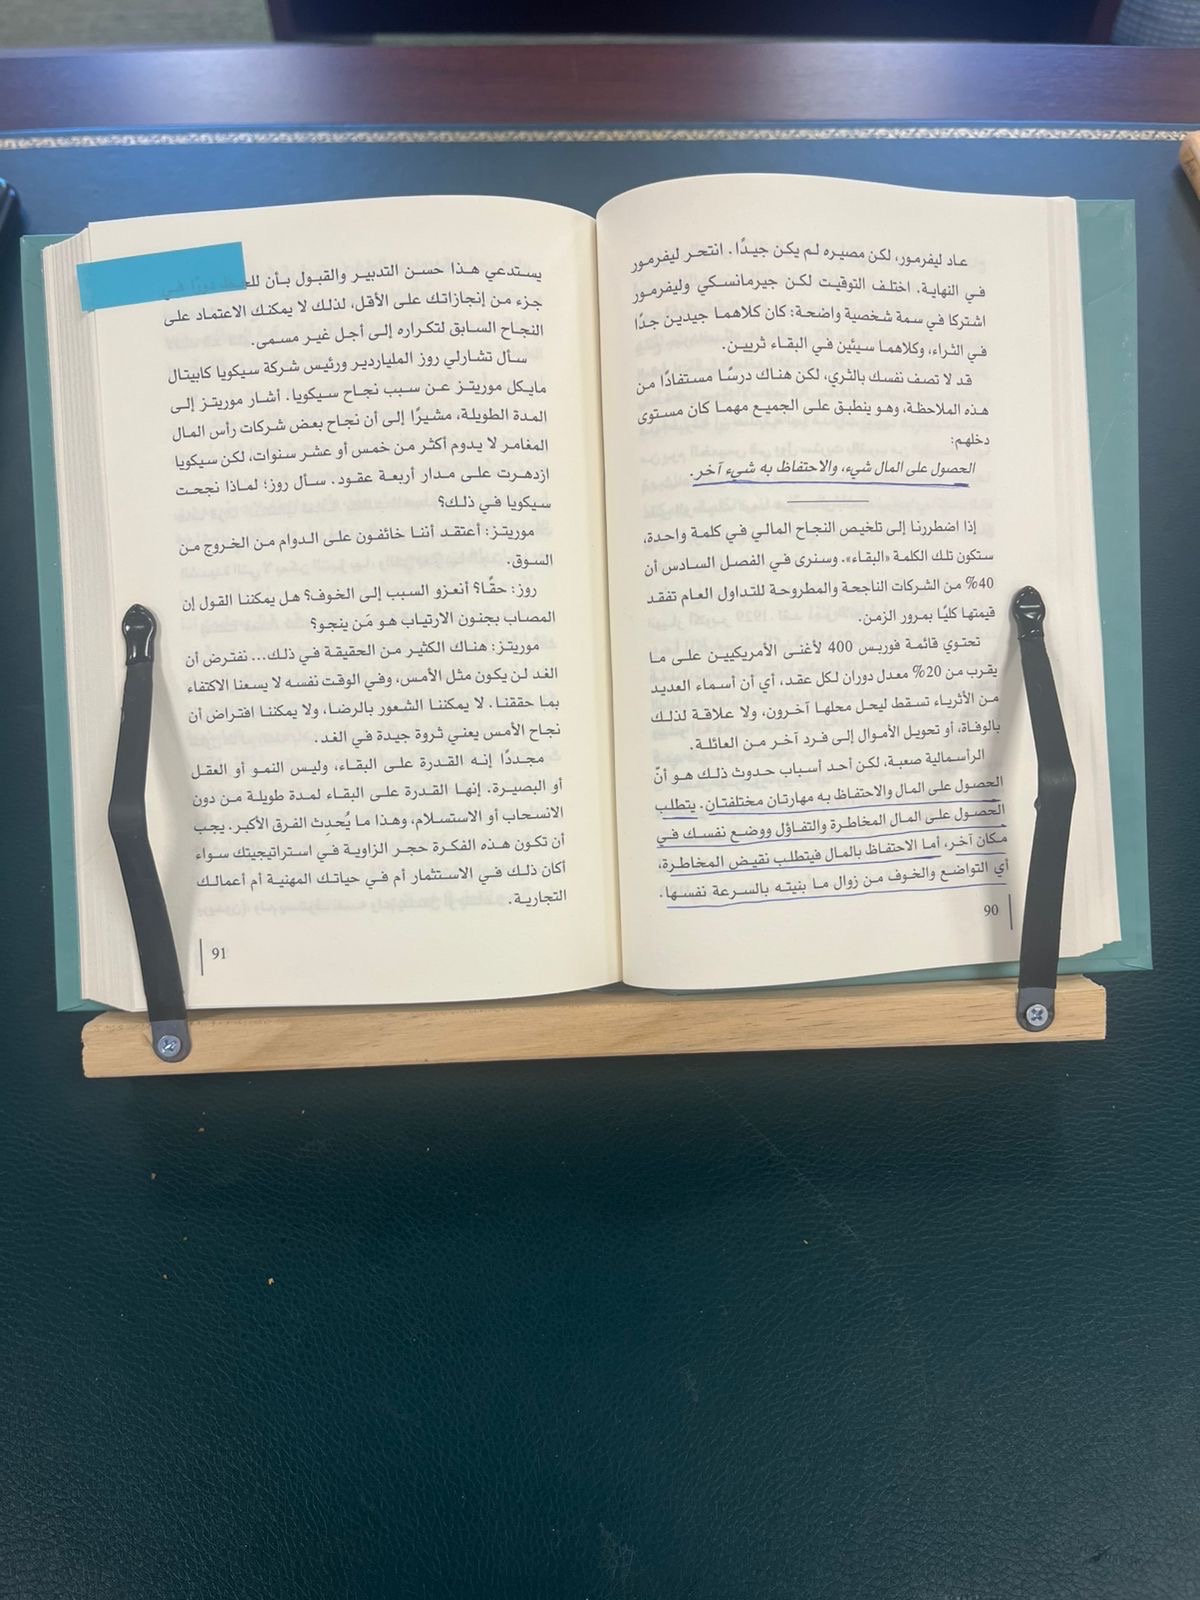 عاد ليفرمور، لكن مصيره لم يكن جيدًا. انتحر ليفرمور
في النهاية. اختلف التوقيت لكن جيرمانسكي وليفرمور
اشتركا في سمة شخصية واضحة: كان كلاهما جيدين جدًا
في الثراء، وكلاهما سيئين في البقاء ثريين.
قد لا تصف نفسك بالثري، لكن هناك درسًا مستفادًا من
هذه الملاحظة، وهو ينطبق على الجميع مهما كان مستوى
دخلهم:
الحصول على المال شيء، والاحتفاظ به شيء آخر.
إذا اضطررنا إلى تلخيص النجاح المالي في كلمة واحدة،
ستكون تلك الكلمة «البقاء». وسنرى في الفصل السادس أن
40% من الشركات الناجحة والمطروحة للتداول العام تفقد
قيمتها كليًا بمرور الزمن.
تحتوي قائمة فوربس 400 لأغنى الأمريكيين على ما
يقرب من 20% معدل دوران لكل عقد، أي أن أسماء العديد
من الأثرياء تسقط ليحل محلها آخرون، ولا علاقة لذلك
بالوفاة، أو تحويل الأموال إلى فرد آخر من العائلة.
الرأسمالية صعبة، لكن أحد أسباب حدوث ذلك هو أنّ
الحصول على المال والاحتفاظ به مهارتان مختلفتان. يتطلب
الحصول على المال المخاطرة والتفاؤل ووضع نفسك في
مكان آخر، أما الاحتفاظ بالمال فيتطلب نقيض المخاطرة،
أي التواضع والخوف من زوال ما بنيته بالسرعة نفسها.
90
يستدعي هذا حسن التدبير والقبول بأن للحظ دورًا في
جزء من إنجازاتك على الأقل، لذلك لا يمكنك الاعتماد على
النجاح السابق لتكراره إلى أجل غير مسمى.
سأل تشارلي روز الملياردير ورئيس شركة سيكويا كابيتال
مايكل موريتز عن سبب نجاح سيكويا. أشار موريتز إلى
المدة الطويلة، مشيرًا إلى أن نجاح بعض شركات رأس المال
المغامر لا يدوم أكثر من خمس أو عشر سنوات، لكن سيكويا
ازدهرت على مدار أربعة عقود. سأل روز؛ لماذا نجحت
سيكويا في ذلك؟
موريتز: أعتقد أننا خائفون على الدوام من الخروج من
السوق.
روز: حقًا؟ أنعزو السبب إلى الخوف؟ هل يمكننا القول إن
المصاب بجنون الارتياب هو مَن ينجو؟
موريتز: هناك الكثير من الحقيقة في ذلك... نفترض أن
الغد لن يكون مثل الأمس، وفي الوقت نفسه لا يسعنا الاكتفاء
بما حققنا. لا يمكننا الشعور بالرضا، ولا يمكننا افتراض أن
نجاح الأمس يعني ثروة جيدة في الغد.
مجددًا إنه القدرة على البقاء، وليس النمو أو العقل
أو البصيرة. إنها القدرة على البقاء لمدة طويلة من دون
الانسحاب أو الاستسلام، وهذا ما يُحدِث الفرق الأكبر. يجب
أن تكون هذه الفكرة حجر الزاوية في استراتيجيتك سواء
أكان ذلك في الاستثمار أم في حياتك المهنية أم أعمالك
التجارية.
91